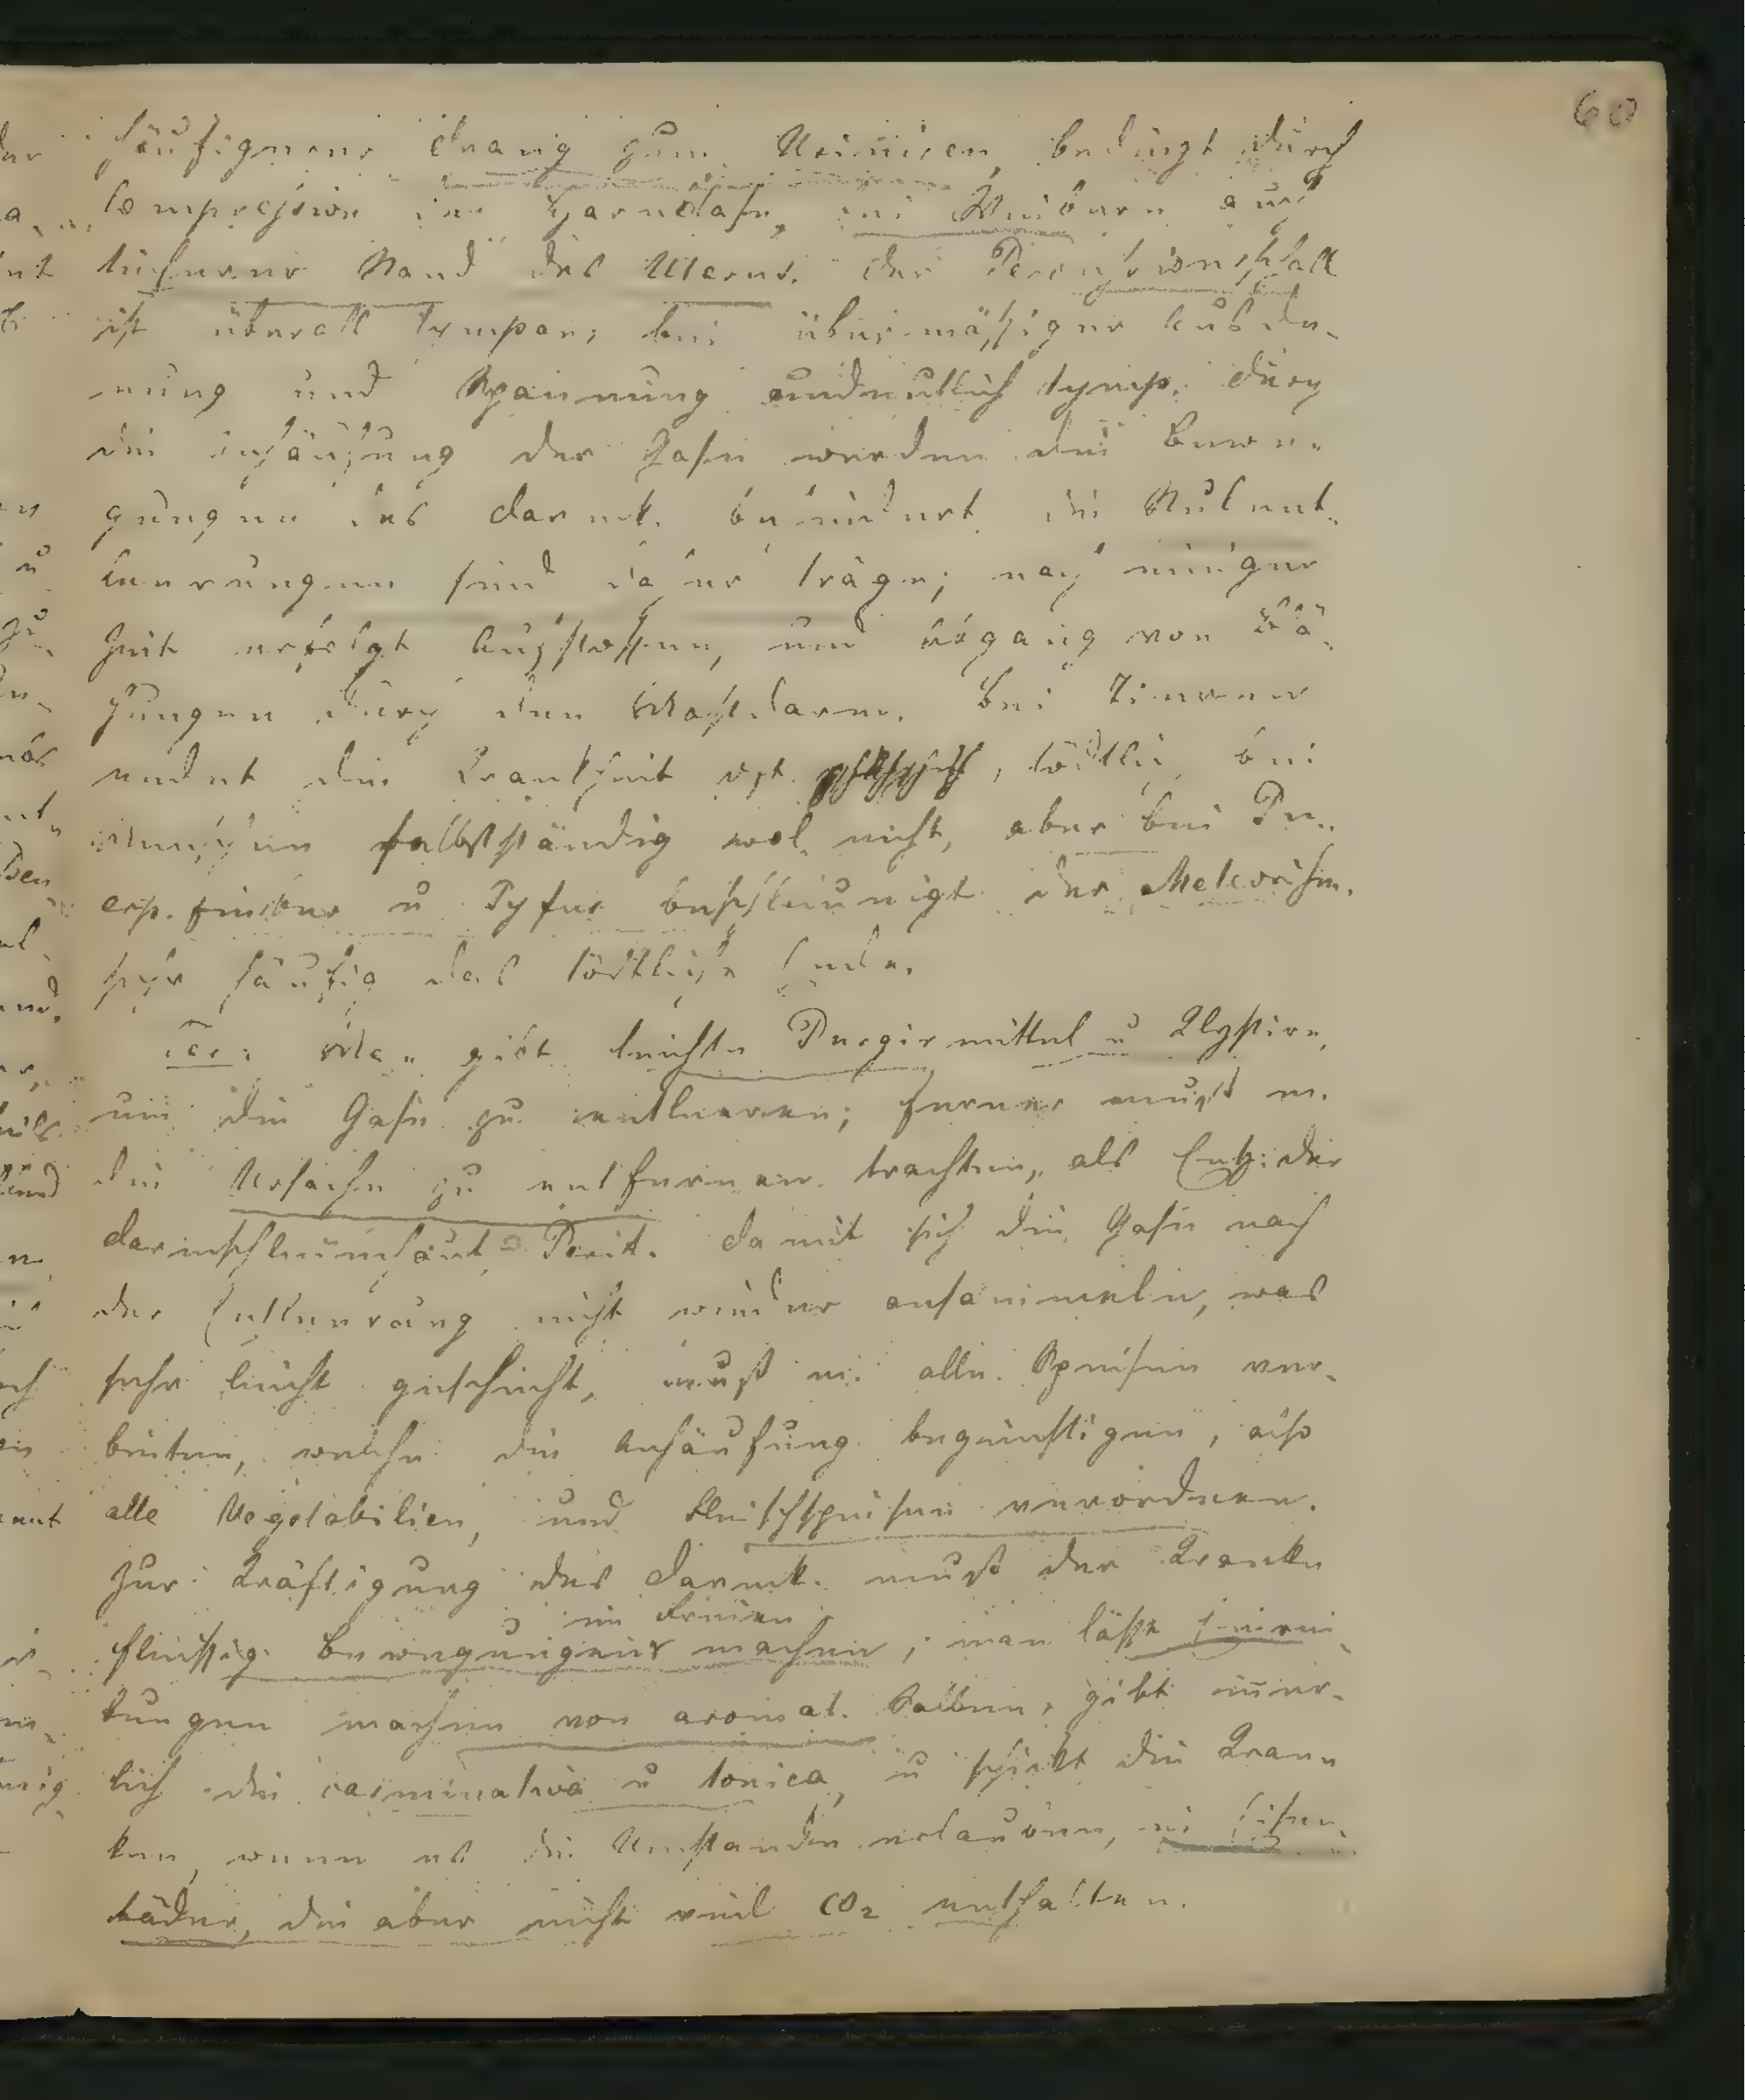 60
häufigerer Drang zum Uriniren, bedingt durch
Compression der Harnblase, bei Weibern auch
tieferer Stand des Uterus. Der Percussionschall
ist überall tympan; bei übermässiger Ausdeh-
nung und Spannung undeutlich tymp. Durch
die Anhäufung der Gase werden die Bewe-
gungen des Darmk. behindert die Stulent-
leerungen sind daher träge; nach einiger
Zeit erfolgt Aufstossen, und Abgang von Blä-
hungen durch den Mastdarm. Bei Tieren
endet die Krankheit oft, tödtlich bei
Menschen selbstständig wol nicht, aber bei Pu-
erp. fieber u Tyfus beschleunigt der Meteorism.
sehr häufig das tödtliche Ende.
Ter: Man gibt leichte Purgirmittel u Klystire,
um die Gase zu entleeren; ferner muß m.
die Ursache zu entfernen trachten, als Entz: der
Darmschleimhaut, Perit. Damit sich die Gase nach
der Entleerung nicht wieder ansammeln, was
sehr leicht geschieht, muß m. alle Speisen ver-
bieten, welche die Anhäufung begünstigen, also
alle Vegetabilien, und Fleischspeisen verordnen.
Zur Kräftigung des Darmk. muß der Kranke
im Freien
fleissig Bewegungen machen; man läßt Einrei-
bungen machen von aromat. Salben, gibt inner-
lich die carminativa u tonica, u schickt die Kran-
ken, wenn es die Umstände erlauben, in Eisen-
bäder, die aber nicht viel CO2 enthalten.